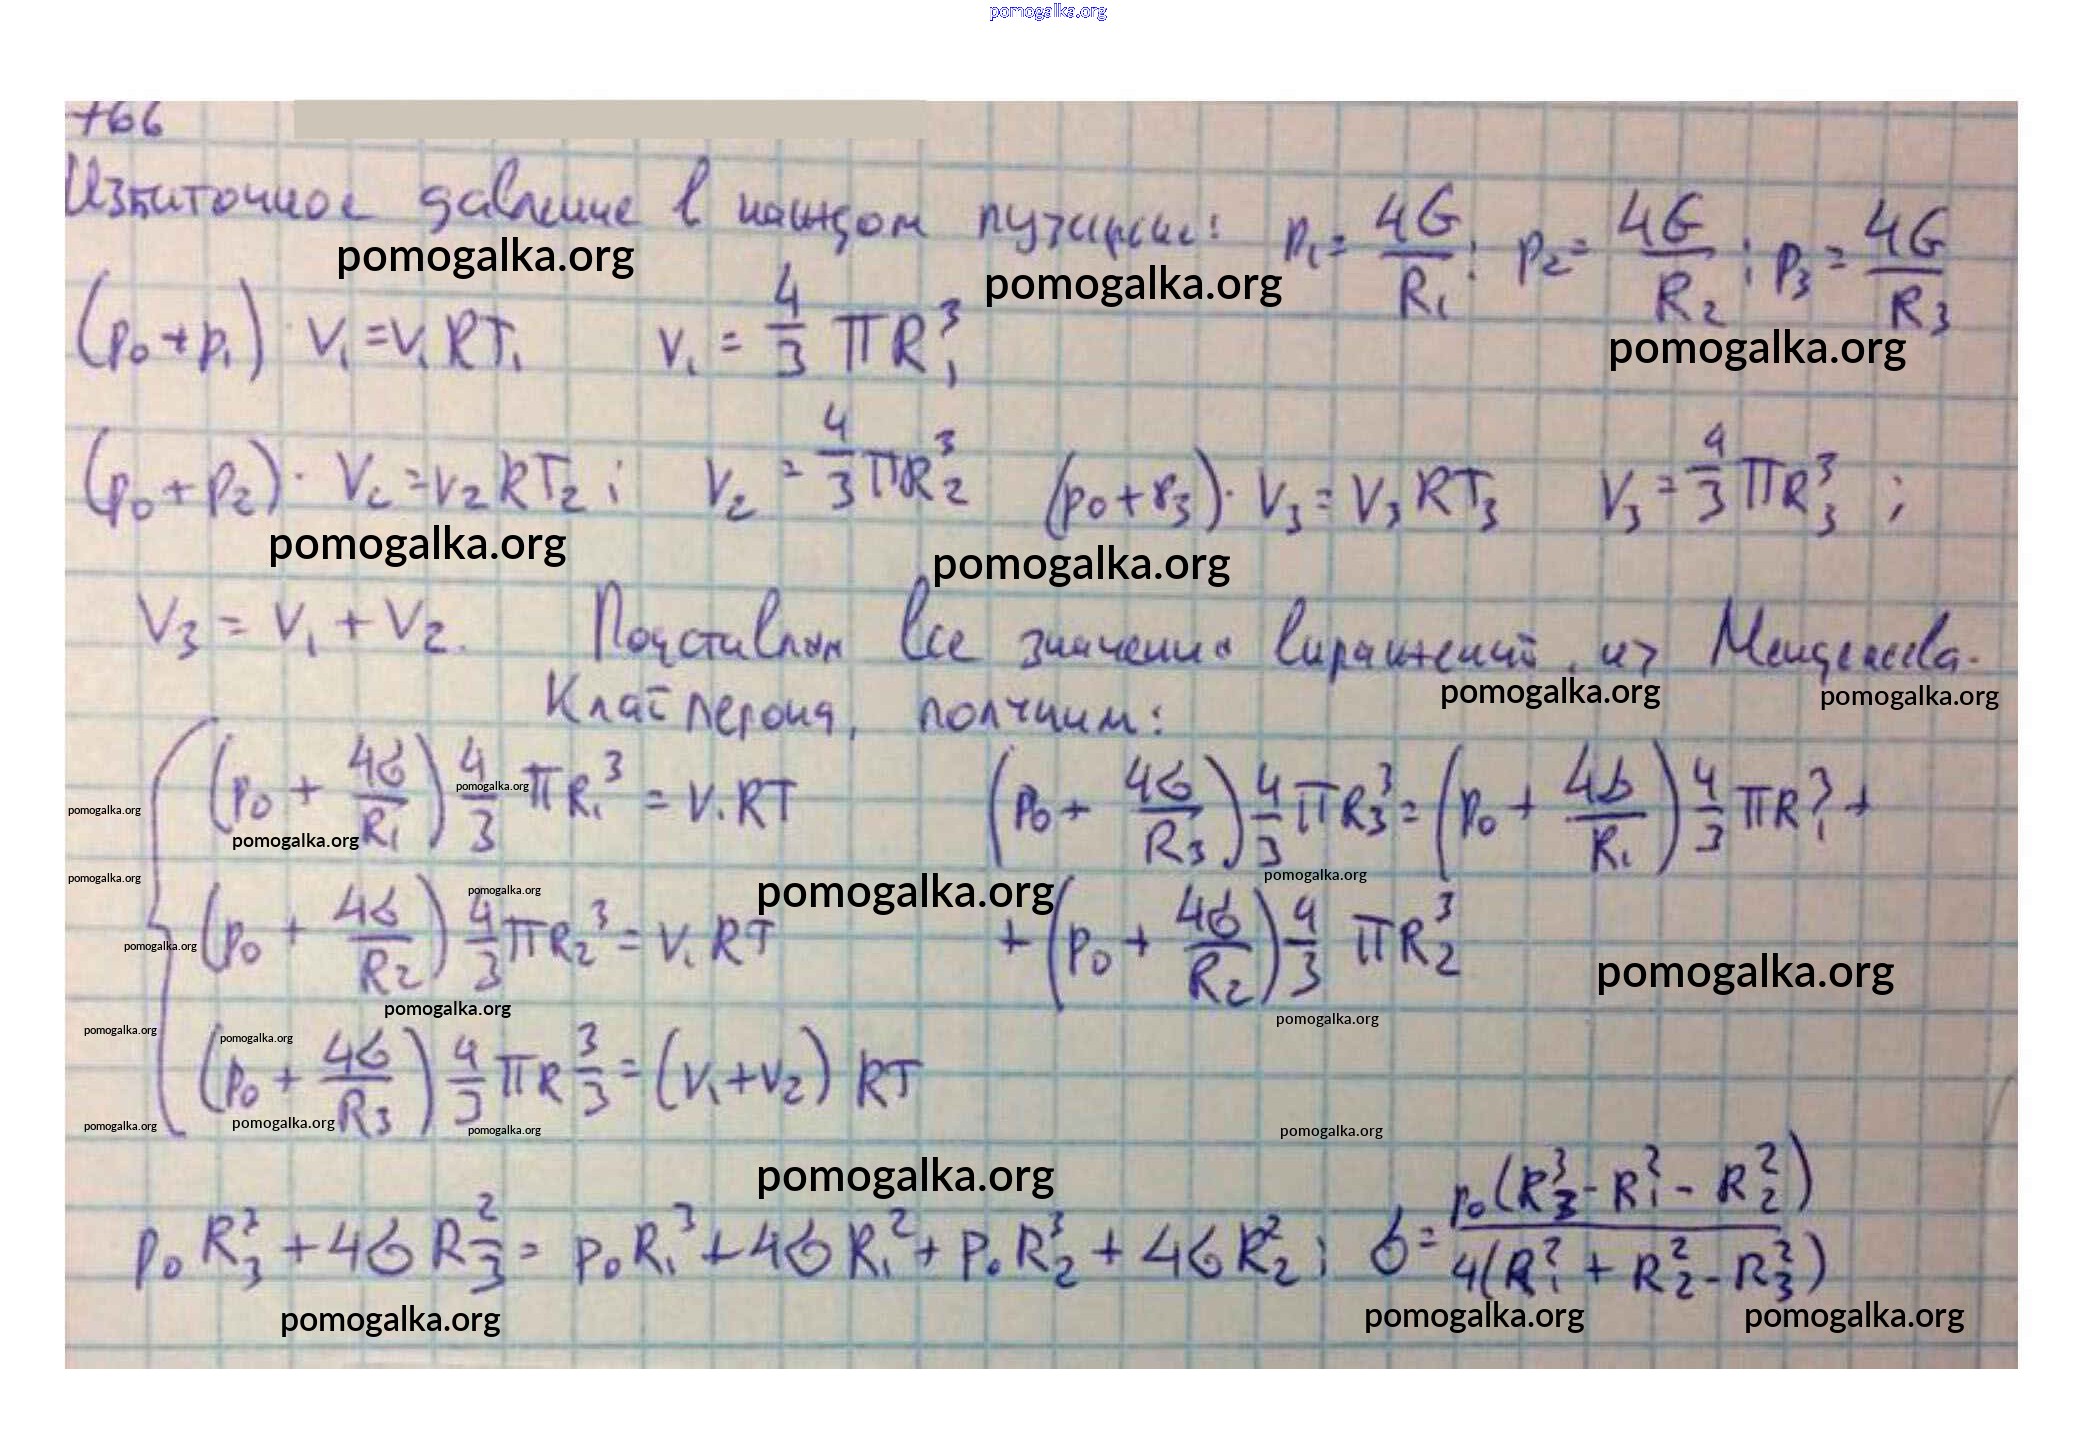 pomogalka.org
766
Избиточное давление в каждом пузирьке: p₁ = 4G/R₁; p₂ = 4G/R₂; p₃ = 4G/R₃
pomogalka.org pomogalka.org pomogalka.org
(p₀ + p₁) · V₁ = ν₁RT₁ V₁ = 4/3 πR₁³
(p₀ + p₂) · V₂ = ν₂RT₂; V₂ = 4/3 πR₂³ (p₀ + p₃) · V₃ = ν₃RT₃ V₃ = 4/3 πR₃³;
pomogalka.org pomogalka.org
ν₃ = ν₁ + ν₂. Подставляем все значения виражений из Менделеева-
pomogalka.org pomogalka.org
Клайперона, получим:
(p₀ + 4σ/R₁) 4/3 πR₁³ = ν₁RT (p₀ + 4σ/R₃) 4/3 πR₃³ = (p₀ + 4σ/R₁) 4/3 πR₁³ +
pomogalka.org pomogalka.org pomogalka.org
pomogalka.org pomogalka.org pomogalka.org pomogalka.org
(p₀ + 4σ/R₂) 4/3 πR₂³ = ν₁RT + (p₀ + 4σ/R₂) 4/3 πR₂³
pomogalka.org pomogalka.org
pomogalka.org pomogalka.org
pomogalka.org pomogalka.org
(p₀ + 4σ/R₃) 4/3 πR₃³ = (ν₁ + ν₂) RT
pomogalka.org pomogalka.org pomogalka.org pomogalka.org
pomogalka.org
p₀R₃³ + 4σR₃² = p₀R₁³ + 4σR₁² + p₀R₂³ + 4σR₂²; σ = p₀(R₃³ - R₁³ - R₂²) / 4(R₁² + R₂² - R₃²)
pomogalka.org pomogalka.org pomogalka.org